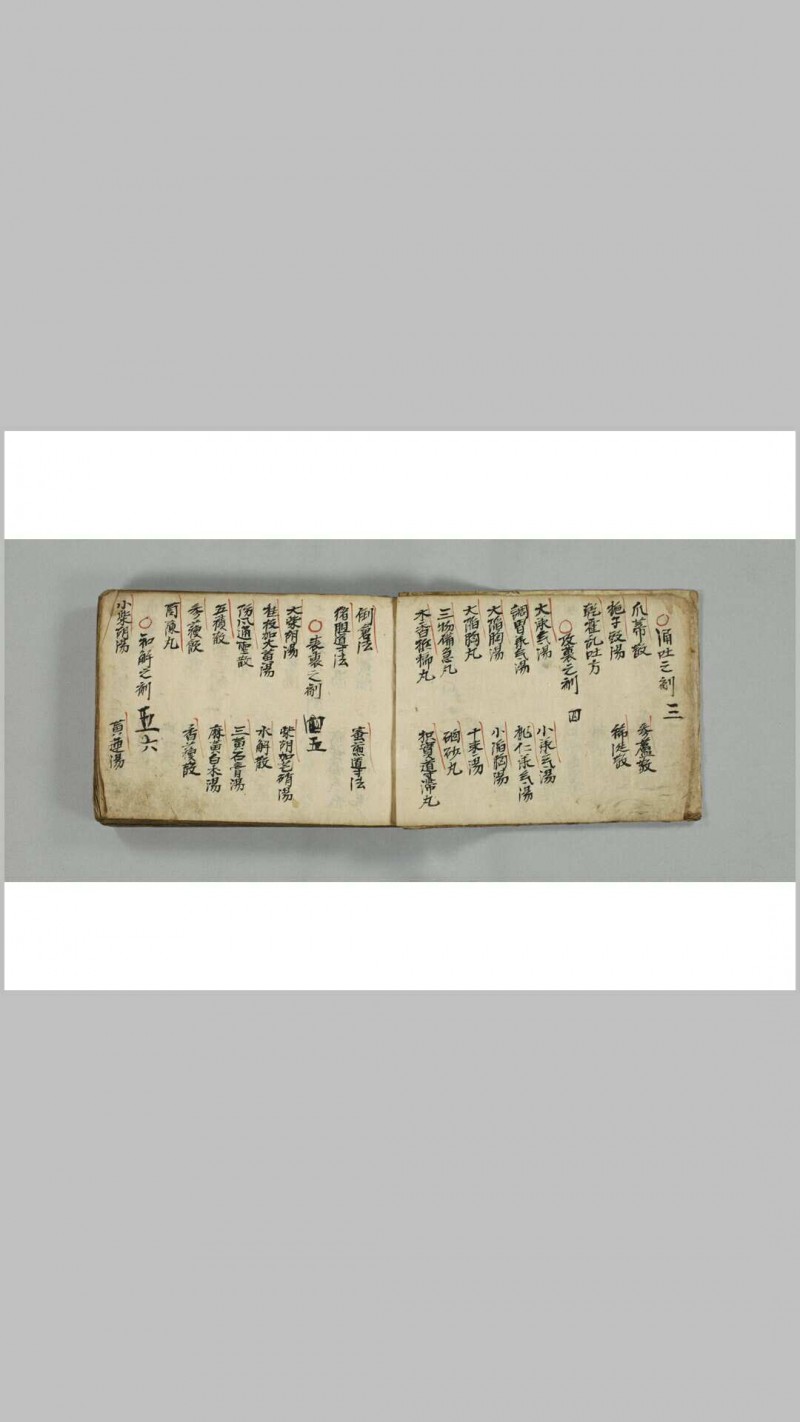 ○涌吐之剤 三
瓜蒂散 参蘆散
栀子豉湯 稀涎散
乾霍乱吐方
○攻裏之剤 四
大承气湯 小承气湯
調胃承气湯 桃仁承气湯
大陷胸湯 小陷胸湯
大陷胸丸 十枣湯
三物備急丸 硇砂丸
木香梹榔丸 枳實導滞丸
倒倉法 蜜煎導法
猪胆導法
○表裏之剤 五
大柴胡湯 柴胡加芒硝湯
桂枝加大黄湯 水解散
防风通聖散 三黄石膏湯
五積散 麻黄白术湯
参蘓飲 香薷飲
茵陳丸
○和解之剤 六
小柴胡湯 黄連湯